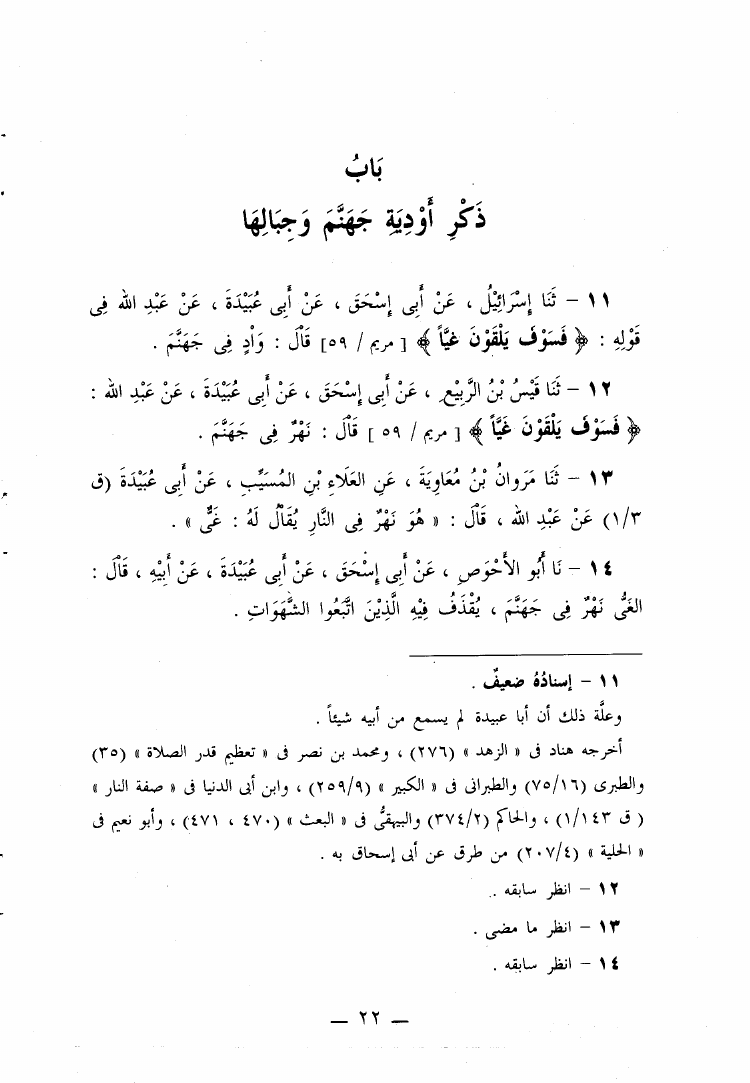 بَابُ
ذَكْرِ أَوْدِيَةِ جَهَنَّمَ وَجِبَالِهَا
١١ - ثَنَا إِسْرَائِيْلُ ، عَنْ أَبِى إِسْحَقَ ، عَنْ أَبِى عُبَيْدَةَ ، عَنْ عَبْدِ الله فِى
قَوْلِهِ : ﴿ فَسَوْفَ يَلْقَوْنَ غَيَّاً ﴾ [ مريم / ٥٩] قَالَ : وَاْدٍ فِى جَهَنَّمَ .
١٢ - ثَنَا قَيْسُ بْنُ الرَّبِيْعِ ، عَنْ أَبِى إِسْحَقَ ، عَنْ أَبِى عُبَيْدَةَ ، عَنْ عَبْدِ الله :
﴿ فَسَوْفَ يَلْقَوْنَ غَيَّاً ﴾ [ مريم / ٥٩ ] قَالَ : نَهْرٌ فِى جَهَنَّمَ .
١٣ - ثَنَا مَروانُ بْنُ مُعَاوِيَةَ ، عَنِ العَلَاءِ بْنِ المُسَيَّبِ ، عَنْ أَبِى عُبَيْدَةَ (ق
١/٣) عَنْ عَبْدِ الله ، قَالَ : « هُوَ نَهْرٌ فِى النَّارِ يُقَالُ لَهُ : غَىٌّ » .
١٤ - نَا أَبُو الأَحْوَصِ ، عَنْ أَبِى إِسْحَقَ ، عَنْ أَبِى عُبَيْدَةَ ، عَنْ أَبِيْهِ ، قَالَ :
الغَىُّ نَهْرٌ فِى جَهَنَّمَ ، يُقْذَفُ فِيْهِ الَّذِيْنَ اتَّبَعُوا الشَّهَوَاتِ .
١١ - إسنادُهُ ضعيفٌ .
وعلَّة ذلك أن أبا عبيدة لم يسمع من أبيه شيئاً .
أخرجه هناد فى « الزهد » (٢٧٦) ، ومحمد بن نصر فى « تعظيم قدر الصلاة » (٣٥)
والطبرى (٧٥/١٦) والطبرانى فى « الكبير » (٢٥٩/٩) ، وابن أبى الدنيا فى « صفة النار »
( ق ١/١٤٣) ، والحاكم (٣٧٤/٢) والبيهقىُّ فى « البعث » (٤٧٠ ، ٤٧١) ، وأبو نعيم فى
« الحلية » (٢٠٧/٤) من طرق عن أبى إسحاق به .
١٢ - انظر سابقه .
١٣ - انظر ما مضى .
١٤ - انظر سابقه .
— ٢٢ —